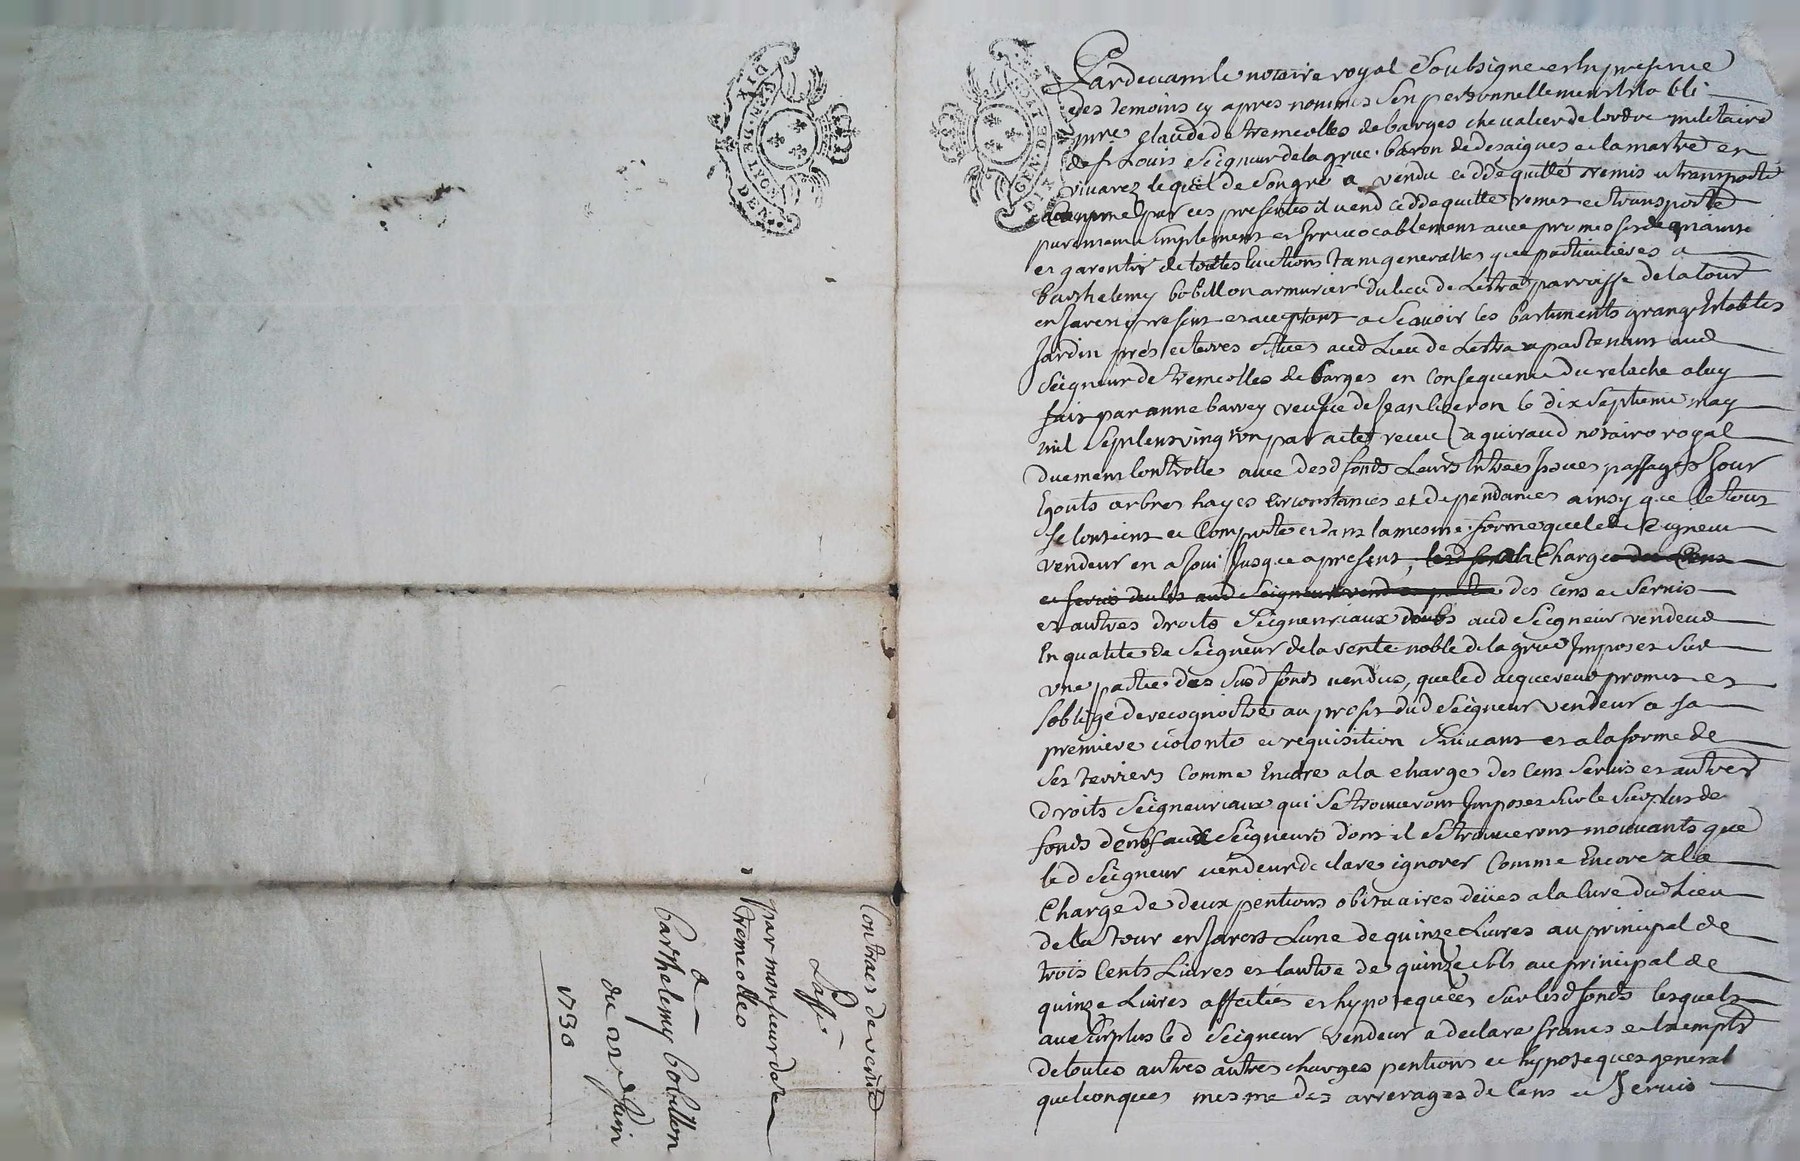 GEN. DE LYON
DIX DEN.
GEN. DE LYON
DIX DEN.
Contract de vente
passé
par monsieur de
tremeolles
a
barthelemy bobillon
du 22 Juin
1730
Pardevant le notaire royal Soubsigne et En presence
des temoins cy apres nommes Sest personnellement Estably
mre Claude de tremeolles de barges chevalier de lordre militaire
de St Louis Seigneur de la grue baron de desaignes et la martre en
vivarez lequel de Son gre a vendu cedde quitté remis et transporté
comme par ces presentes il vend cedde quitte remet et transporte
purement simplement et Irrevocablement avec promesses de maintenir
et garentir de toutes Evictions tant generalles que particulieres a
barthelemy bobillon armurier du lieu de Lestra parroisse de la tour
en Jarest present et acceptant a Scavoir les bastiments grange Establés
Jardin prés et terres Situes aud Lieu de Lestra apartenant aud
Seigneur de tremeolles de barges en Consequence du relache a luy
fait par anne barvey veufve de Jean le dix Septieme may
mil Sept cens vingt par acte receu guiraud notaire royal
duement Controlle avec desd fonds Leurs Entrees Issues passages Jour
Egouts arbres hayes circonstances et dependances ainsy que le tout
Se contient et Comporte et dans la mesme forme que led Seigneur
vendeur en a Joui Jusque a present, a la Charge des Cens
et servis deubs aud Seigneur des cens et Servis
et autres droits Seigneuriaux deubs aud Seigneur vendeur
En qualite de Seigneur de la rente noble de la grue Imposes Sur
une partie des Susd fonds vendus, que led acquereur promet et
Soblige de recognoitre au profit dud Seigneur vendeur a Sa
premiere volonte et requisition Suivant et a la forme de
Ses terriers Comme Encore a la charge des Cens Servis et autres
droits Seigneuriaux qui Se trouveront Imposes Sur le Surplus de
fonds aux Seigneurs dont il Se trouveront mouvants que
led Seigneur vendeur declare ignorer Comme Encore a la
Charge de deux pentions obituaires deües a la Cure dud Lieu
de la tour en Jarest Lune de quinze Livres au principal de
trois Cents Livres et lautre de quinze sols au principal de
quinze Livres affectées et hypotequées Sur lesd fonds lesquels
au Surplus led Seigneur vendeur a declare francs et Exempts
de toutes autres autres charges pentions et hypoteques general
quelconques mesme des arrerages de Cens et Servis